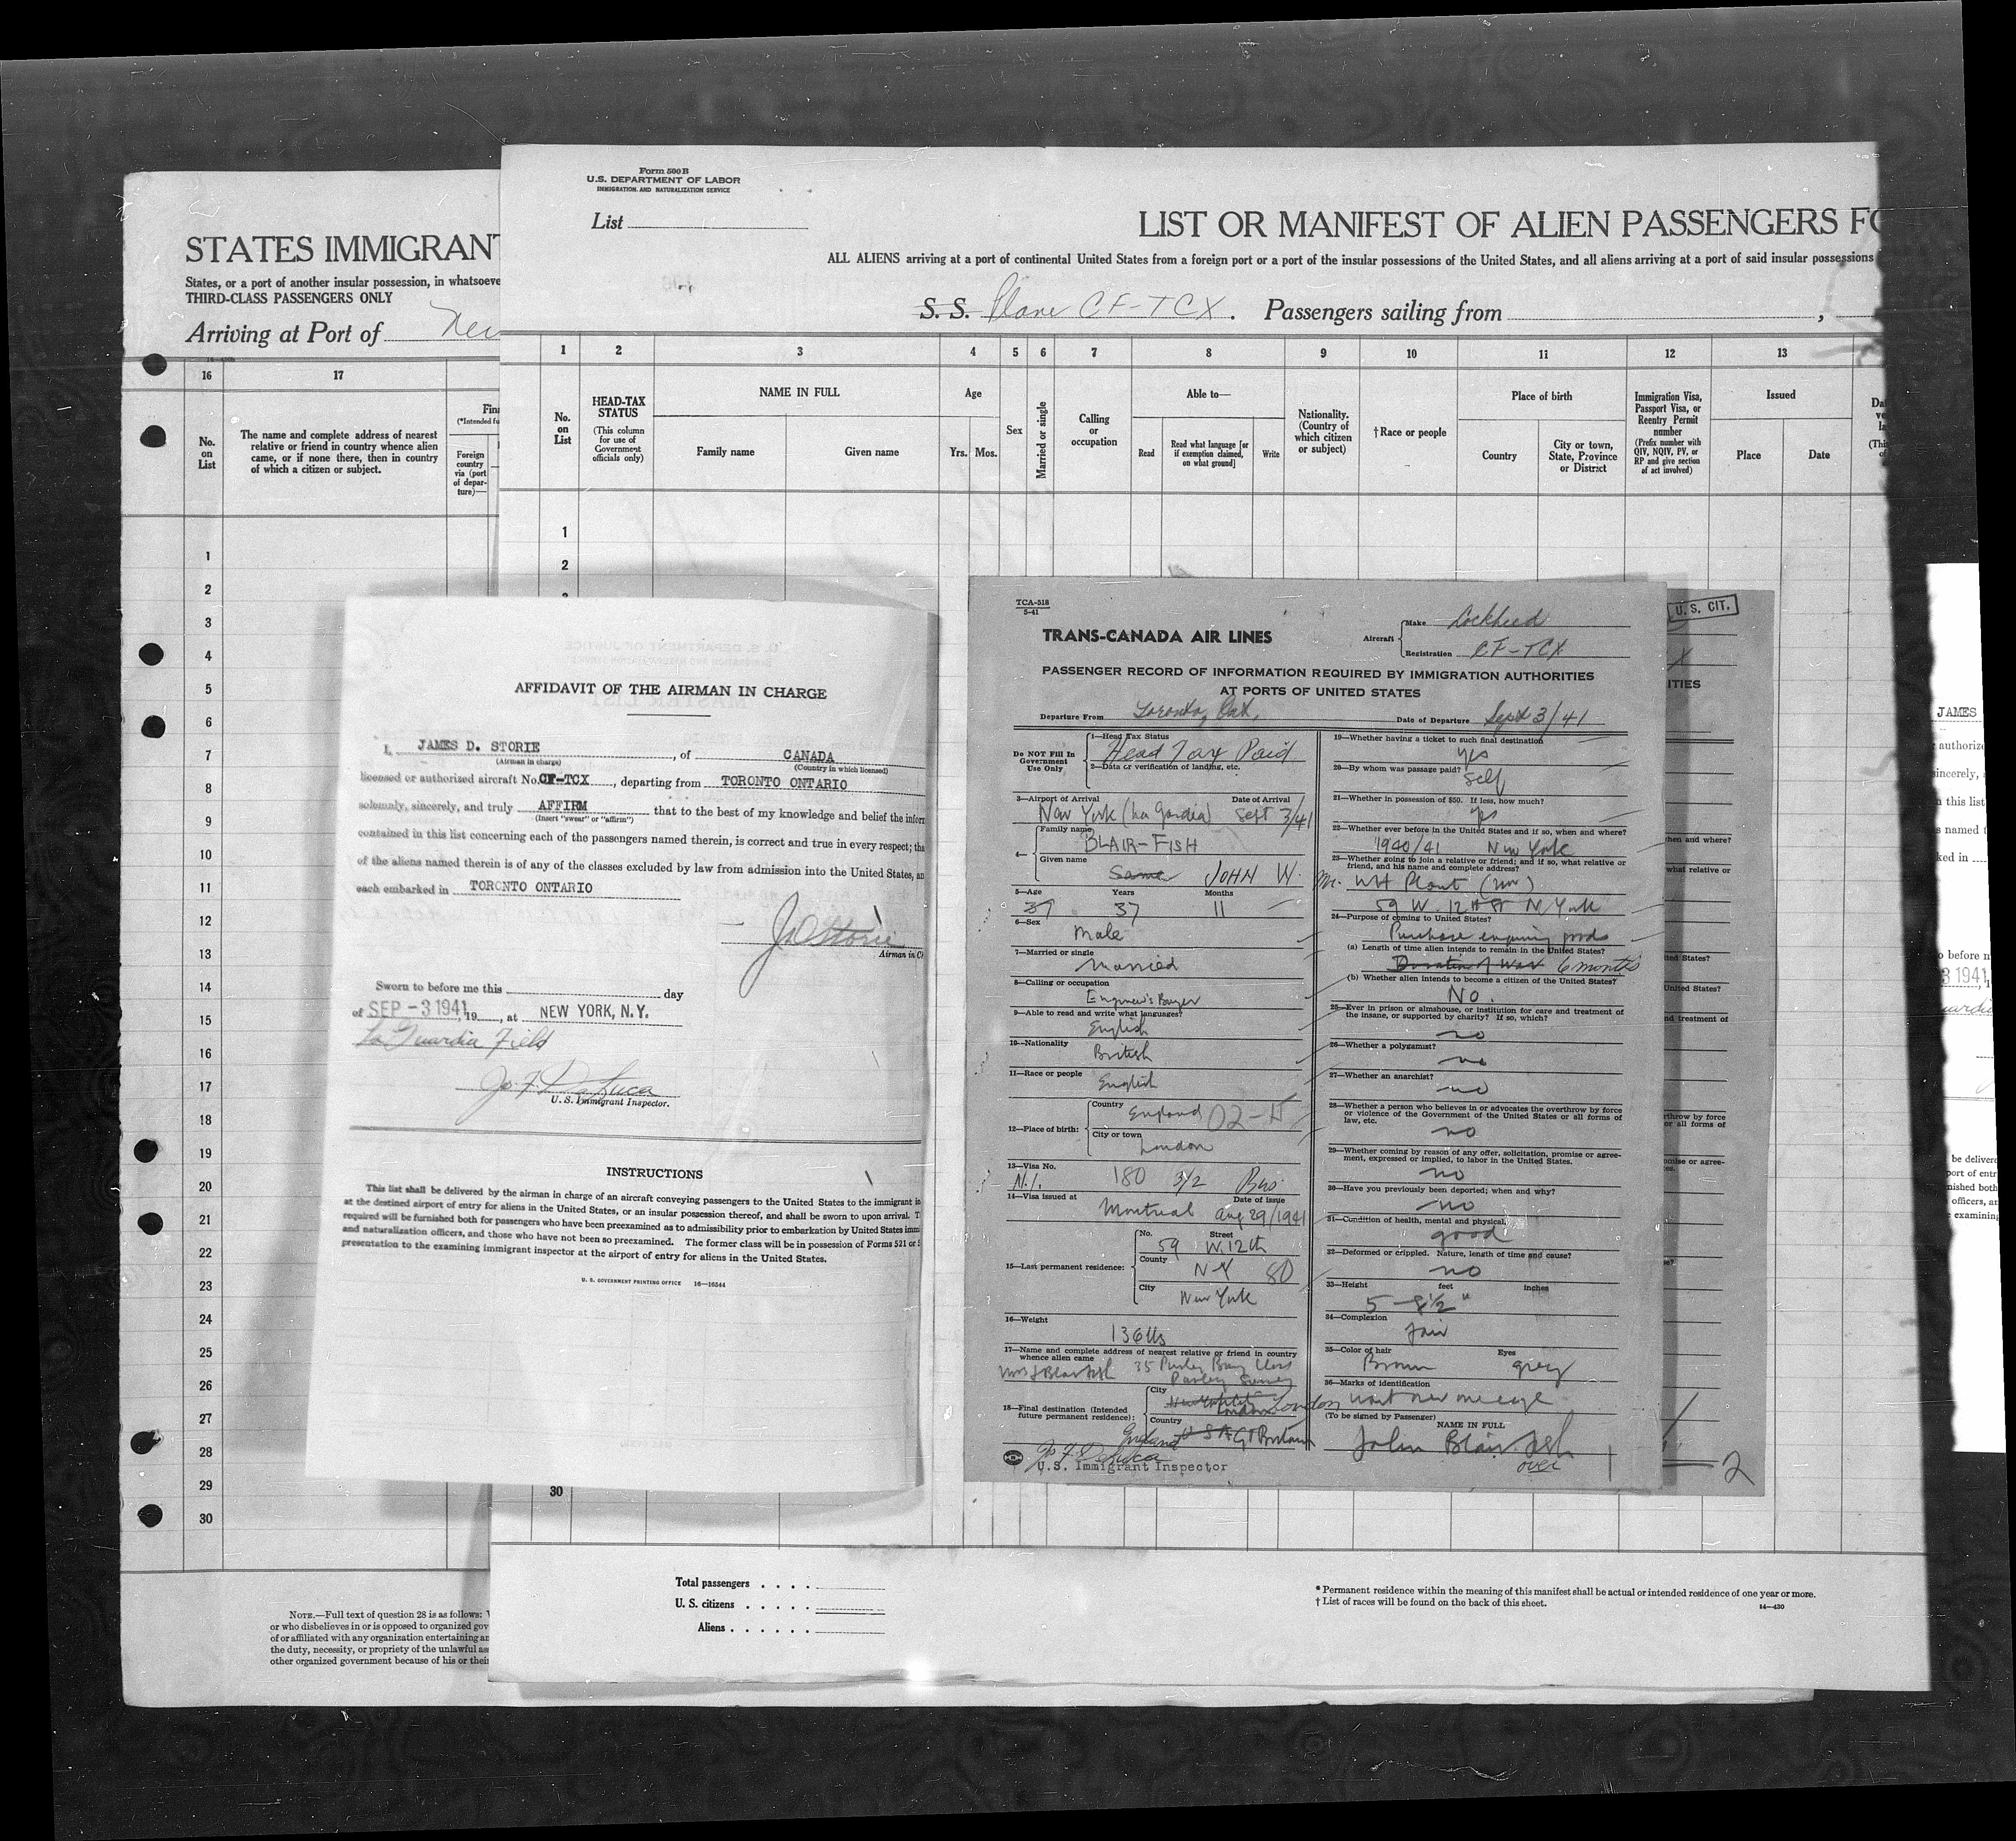 STATES IMMIGRANT
States, or a port of another insular possession, in whatsoever
THIRD-CLASS PASSENGERS ONLY
Arriving at Port of New
16
17
No. on List
The name and complete address of nearest
relative or friend in country whence alien
came, or if none there, then in country
of which a citizen or subject.
(*Intended fu
Foreign
country
via (port
of depar-
ture)—
1
2
3
4
5
6
7
8
9
10
11
12
13
14
15
16
17
18
19
20
21
22
23
24
25
26
27
28
29
30
NOTE.—Full text of question 28 is as follows:
or who disbelieves in or is opposed to organized gov
of or affiliated with any organization entertaining an
the duty, necessity, or propriety of the unlawful as
other organized government because of his or their
Form 500 B
U.S. DEPARTMENT OF LABOR
IMMIGRATION AND NATURALIZATION SERVICE
List
LIST OR MANIFEST OF ALIEN PASSENGERS FO
ALL ALIENS arriving at a port of continental United States from a foreign port or a port of the insular possessions of the United States, and all aliens arriving at a port of said insular possessions
S. S. Plane CF-TCX. Passengers sailing from ,
1 2 3 4 5 6 7 8 9 10 11 12 13
No. on List
HEAD-TAX STATUS
(This column for use of Government officials only)
NAME IN FULL
Family name Given name
Age
Yrs. Mos.
Sex
Married or single
Calling or occupation
Able to—
Read
Read what language [or if exemption claimed, on what ground]
Write
Nationality. (Country of which citizen or subject)
†Race or people
Place of birth
Country
City or town, State, Province or District
Immigration Visa, Passport Visa, or Reentry Permit number
(Prefix number with QIV, NQIV, PV, or RP and give section of act involved)
Issued
Place Date
1
2
30
Total passengers . . . .
U. S. citizens . . . . .
Aliens . . . . . .
* Permanent residence within the meaning of this manifest shall be actual or intended residence of one year or more.
† List of races will be found on the back of this sheet.
14—430
AFFIDAVIT OF THE AIRMAN IN CHARGE
I, JAMES D. STORIE, of CANADA
(Airman in charge) (Country in which licensed)
licensed or authorized aircraft No. CF-TCX, departing from TORONTO ONTARIO
solemnly, sincerely, and truly AFFIRM that to the best of my knowledge and belief the inform
(Insert "swear" or "affirm")
contained in this list concerning each of the passengers named therein, is correct and true in every respect; tha
of the aliens named therein is of any of the classes excluded by law from admission into the United States, an
each embarked in TORONTO ONTARIO
JD Storie
Airman in C
Sworn to before me this day
of SEP -3 1941, 19 , at NEW YORK, N.Y.
La Guardia Field
Jo. F. DeLuca
U. S. Immigrant Inspector.
INSTRUCTIONS
This list shall be delivered by the airman in charge of an aircraft conveying passengers to the United States to the immigrant in
at the destined airport of entry for aliens in the United States, or an insular possession thereof, and shall be sworn to upon arrival. T
required will be furnished both for passengers who have been preexamined as to admissibility prior to embarkation by United States immi
and naturalization officers, and those who have not been so preexamined. The former class will be in possession of Forms 521 or
presentation to the examining immigrant inspector at the airport of entry for aliens in the United States.
U. S. GOVERNMENT PRINTING OFFICE 16—16544
TCA-518
5-41
TRANS-CANADA AIR LINES
Aircraft
Make Lockheed
Registration CF-TCX
PASSENGER RECORD OF INFORMATION REQUIRED BY IMMIGRATION AUTHORITIES
AT PORTS OF UNITED STATES
Departure From Toronto, Ont.
Date of Departure Sept 3/41
Do NOT Fill In
Government
Use Only
1—Head Tax Status
Head Tax Paid
2—Data or verification of landing, etc.
3—Airport of Arrival Date of Arrival
New York (La Gardia) Sept 3/41
4—
Family name
BLAIR-FISH
Given name
Same JOHN W.
5—Age Years Months
37 37 11
6—Sex
Male
7—Married or single
Married
8—Calling or occupation
Engineer's Buyer
9—Able to read and write what languages?
English
10—Nationality
British
11—Race or people
English
12—Place of birth:
Country
England 02-H
City or town
London
13—Visa No.
N.I. 180 3/2 Bus
14—Visa issued at Date of issue
Montreal Aug 29/1941
15—Last permanent residence:
No. Street
59 W. 12th
County
N-Y 80
City
New York
16—Weight
136 lbs
17—Name and complete address of nearest relative or friend in country
whence alien came
35 Purley
Purley Surrey
18—Final destination (Intended
future permanent residence):
City
London London
Country
England U S A Gt Britain
Jo. F. DeLuca
U.S. Immigrant Inspector
19—Whether having a ticket to such final destination
yes
20—By whom was passage paid?
Self
21—Whether in possession of $50. If less, how much?
yes
22—Whether ever before in the United States and if so, when and where?
1940/41 New York
23—Whether going to join a relative or friend; and if so, what relative or
friend, and his name and complete address?
Mr. WH Plant
59 W. 12th St N. York
24—Purpose of coming to United States?
Purchase goods
(a) Length of time alien intends to remain in the United States?
Duration of War 6 months
(b) Whether alien intends to become a citizen of the United States?
No.
25—Ever in prison or almshouse, or institution for care and treatment of
the insane, or supported by charity? If so, which?
no
26—Whether a polygamist?
no
27—Whether an anarchist?
no
28—Whether a person who believes in or advocates the overthrow by force
or violence of the Government of the United States or all forms of
law, etc.
no
29—Whether coming by reason of any offer, solicitation, promise or agree-
ment, expressed or implied, to labor in the United States.
no
30—Have you previously been deported; when and why?
no
31—Condition of health, mental and physical.
good
32—Deformed or crippled. Nature, length of time and cause?
no
33—Height feet inches
5-8½"
34—Complexion
fair
35—Color of hair Eyes
Brown grey
36—Marks of identification
(To be signed by Passenger)
NAME IN FULL
John Blair-Fish
over
U. S. CIT.
X
ITIES
hen and where?
what relative or
ited States?
United States?
nd treatment of
throw by force
or all forms of
omise or agree-
2
JAMES
authorize
sincerely,
this list
named t
ked in
o before m
3 1941
be delivere
port of entr
nished both
officers, an
examining